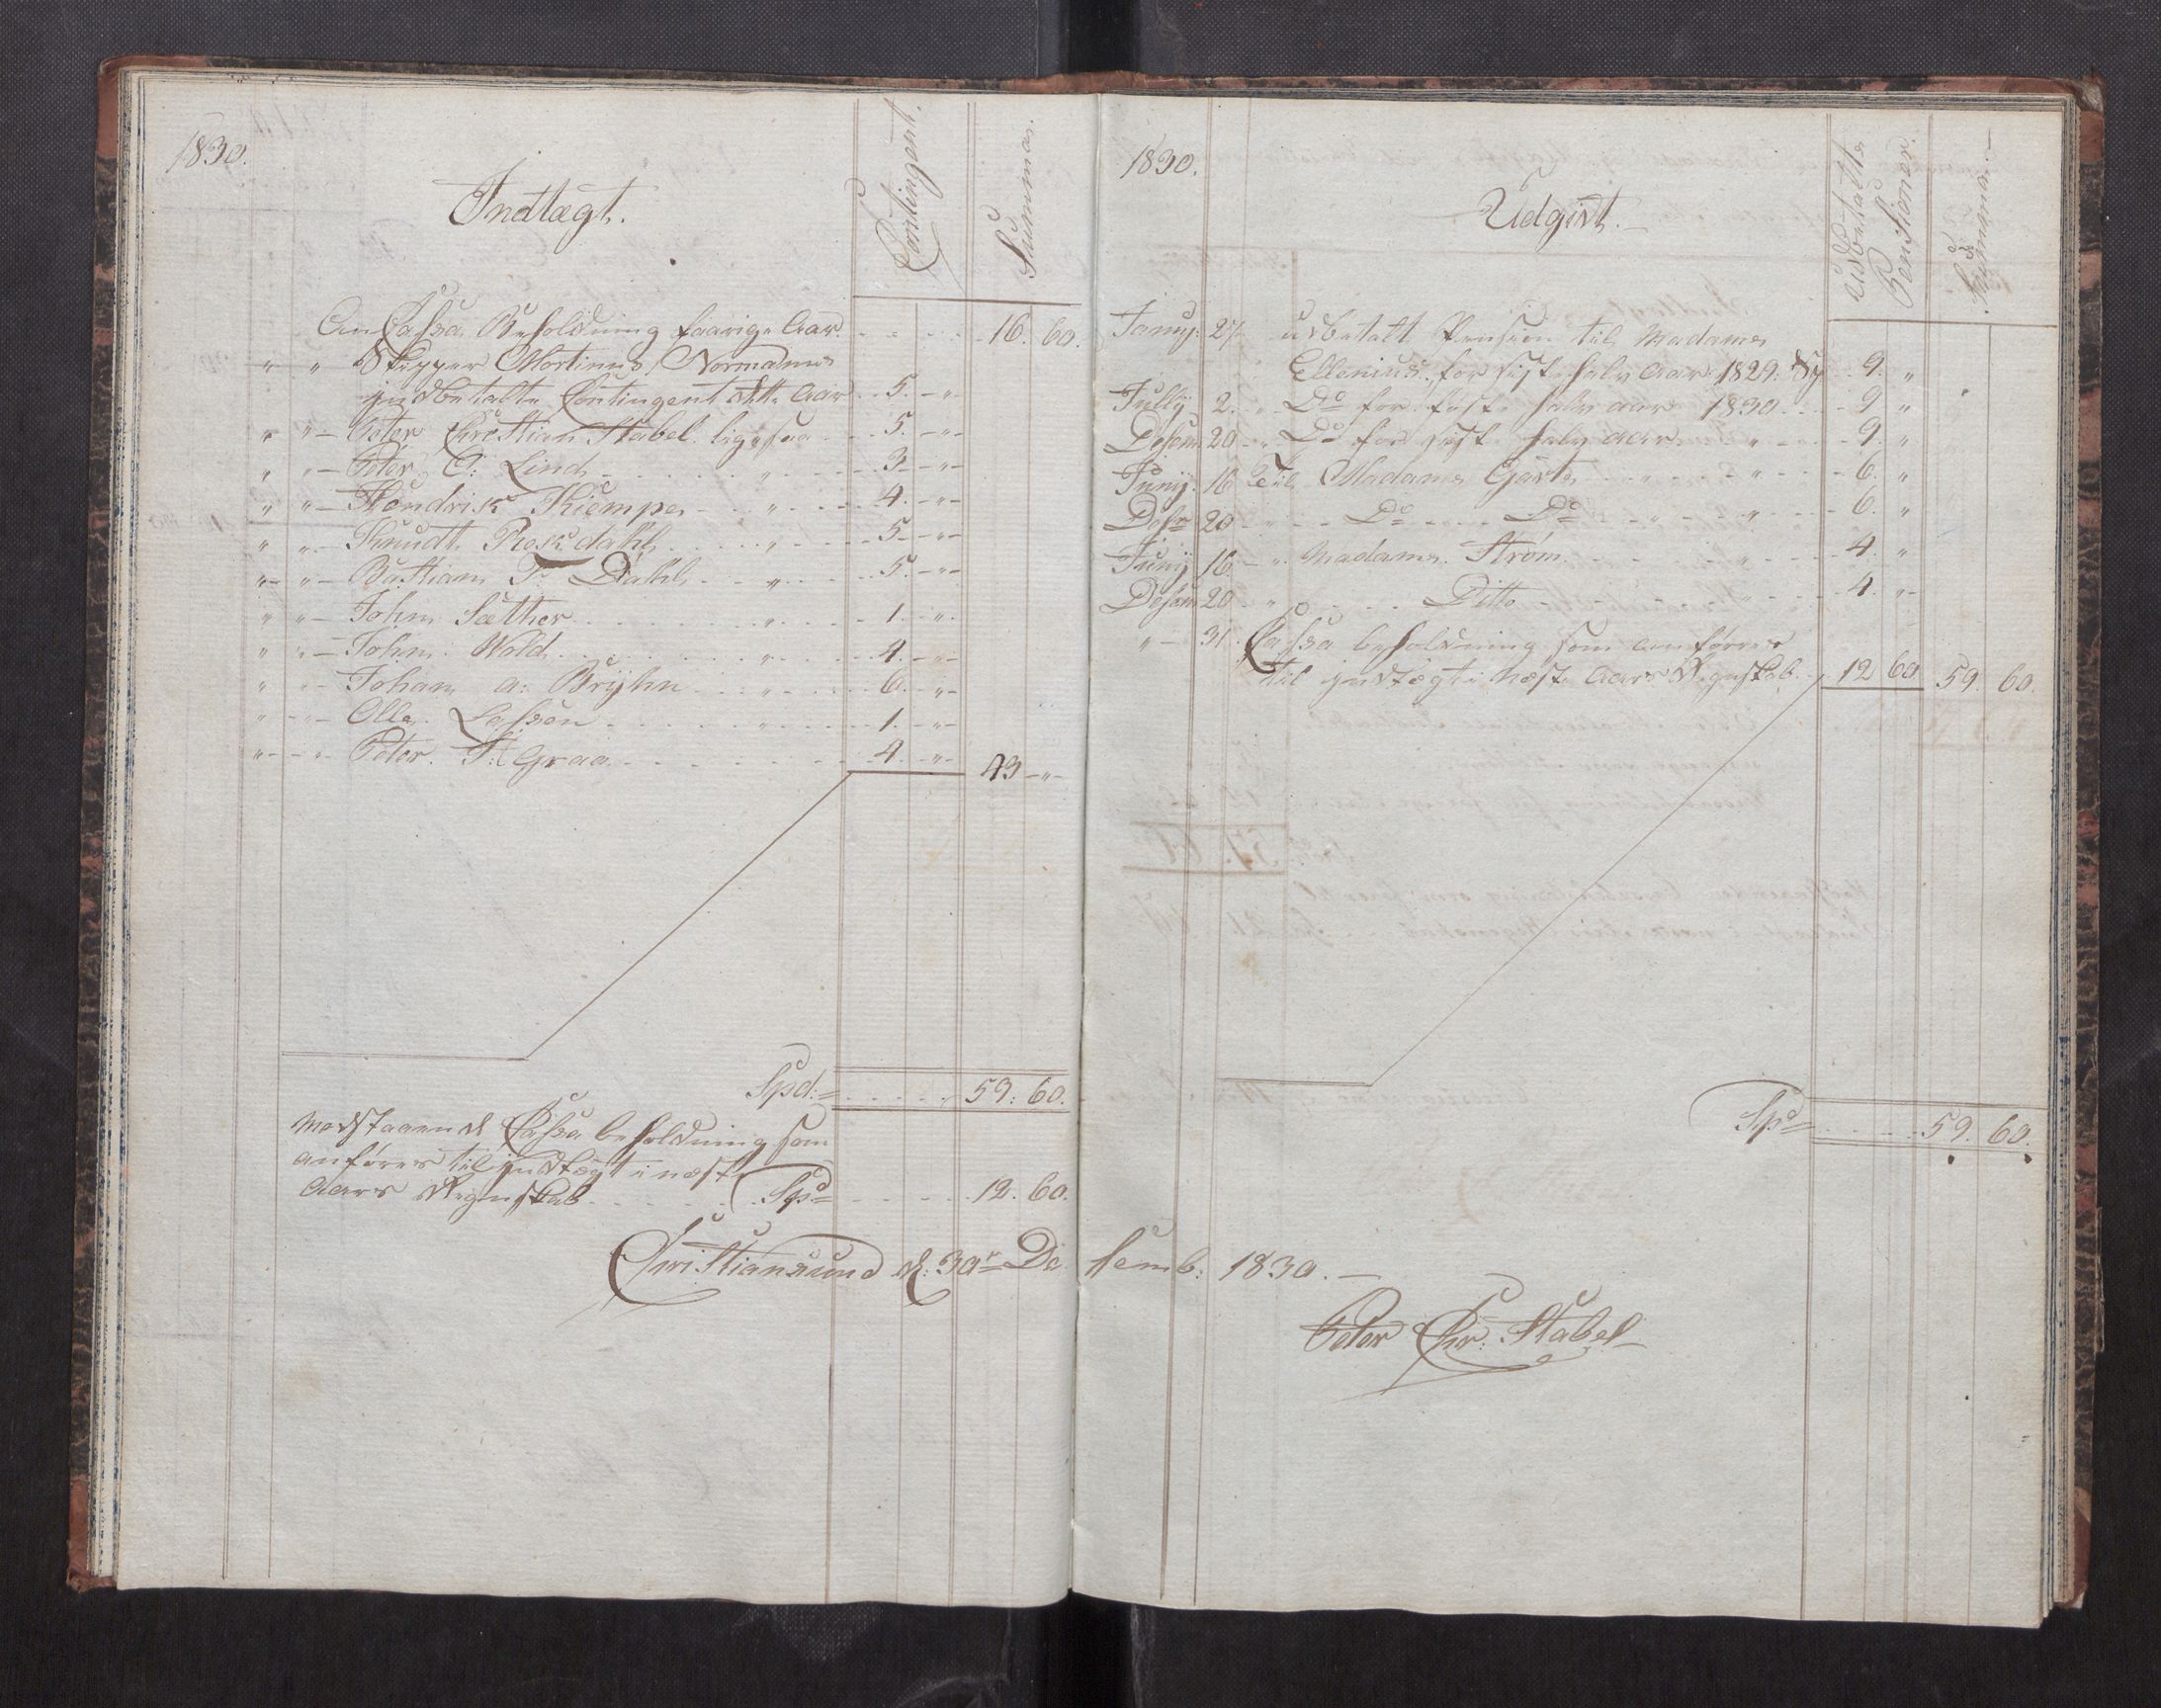 1830.
Indtægt.
Contingent.
Summa.
An Cassa Beholdning forrige Aar 16. 60.
" " Skipper Mortinus Normann
indbetalte Contingent dette Aar 5. "
" " Peter Christian Stabel ligesaa 5. "
" " Peter C: Lind " 3 "
" " Hendrik Kiempe " 4. "
" " Knudt Roskdahl " 5 "
" " Bastian T: Dahl " 5. "
" " John Sæther " 1. "
" " John Wold " 4. "
" " Johan A: Bryhn " 6. "
" " Olle Lassen " 1. "
" " Peter T: Graa 4. " 43 "
Spd: 59: 60.
Modstaaende Cassa beholdning som
anføres til indtægt i næste
Aars Regnskab Spd 12. 60.
Christiansund d: 30te Decemb: 1830.
1830.
Udgivt.
Udbetalte
Pensioner.
Summa.
Januy: 27 udbetalt Pension til Madame
Ellenius for sidste halv Aar 1829. 9. "
Jully 2. Do for første halv aar 1830 9 "
Desem 20 " Do for sidste halv aar " 9. "
Juny: 16 Til Madame Gørtz " 6. "
Desr 20 " Do Do " 6. "
Juny 16 " Madame Strøm " 4. "
Desem 20 " Ditto " 4. "
" 31. Cassa beholdning som anføres
til indtægt i næste Aars Regnskab 12 60 59. 60.
Spd 59. 60.
Peter Chr: Stabel